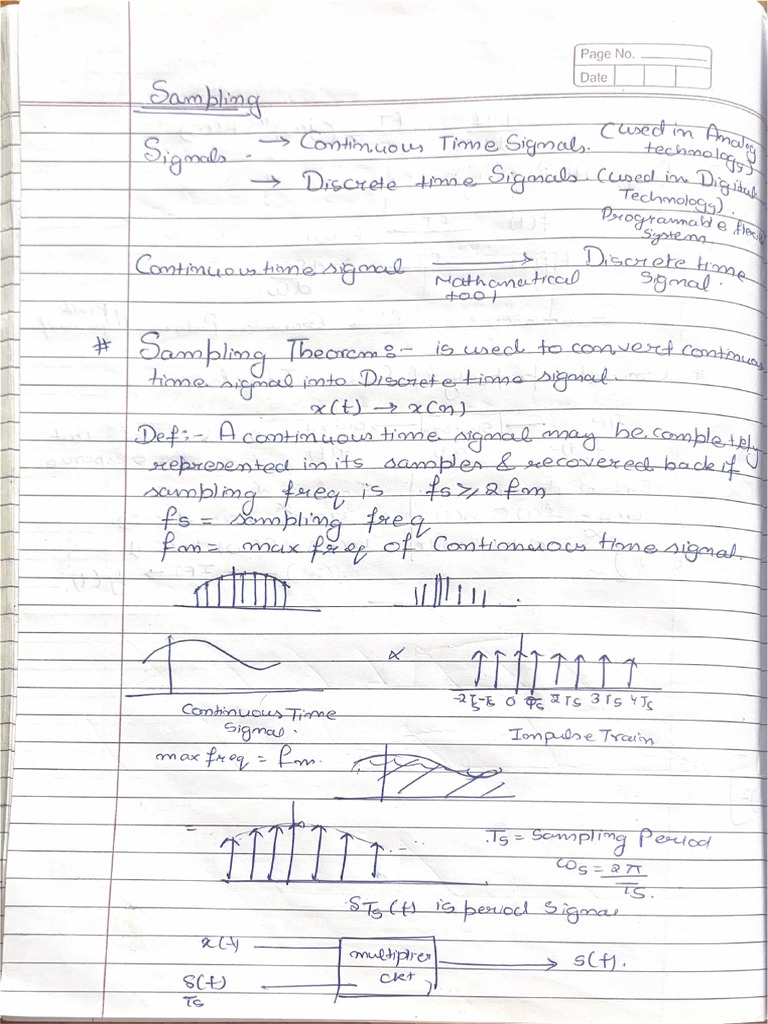 Page No.
Date
Sampling
Signals → Continuous Time Signals. (used in Analog technology)
→ Discrete time Signals. (used in Digital Technology).
Programmable
System
Continuous time signal → Discrete time
Mathematical tool
Signal.
# Sampling Theorem:- is used to convert continuous
time signal into Discrete time signal.
x(t) → x(n)
Def:- A continuous time signal may be completely
represented in its samples & recovered back if
sampling freq is fs ≥ 2fm
fs = sampling freq
fm = max freq of Continuous time signal.
×
-2Ts -Ts 0 Ts 2Ts 3Ts 4Ts
Continuous Time
Signal.
Impulse Train
max freq = fm.
=
Ts = Sampling Period
ωs = 2π/Ts.
δTs(t) is period signal
x(t)
multiplier
ckt
s(t).
δ(t)
Ts